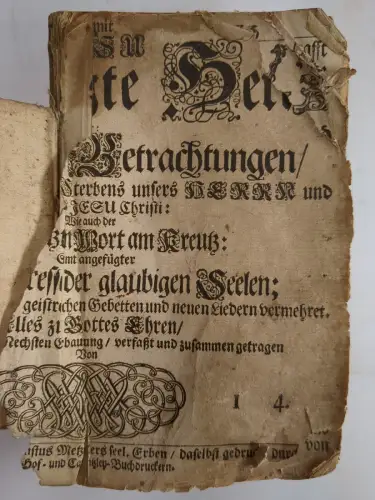 mit
ESU
afft
gte Hertz
Betrachtungen/
Sterbens unsers HERRN und
JESU Christi:
Wie auch der
Wort am Kreutz:
Samt angefügter
der glaubigen Seelen;
geistreichen Gebetten und neuen Liedern vermehret.
Alles zu Gottes Ehren/
Nechsten Erbauung/ verfaßt und zusammen getragen
Von
1 4.
Metzlers seel. Erben/ daselbst gedruckt durch von
Hof- und Cantzley-Buchdruckern.